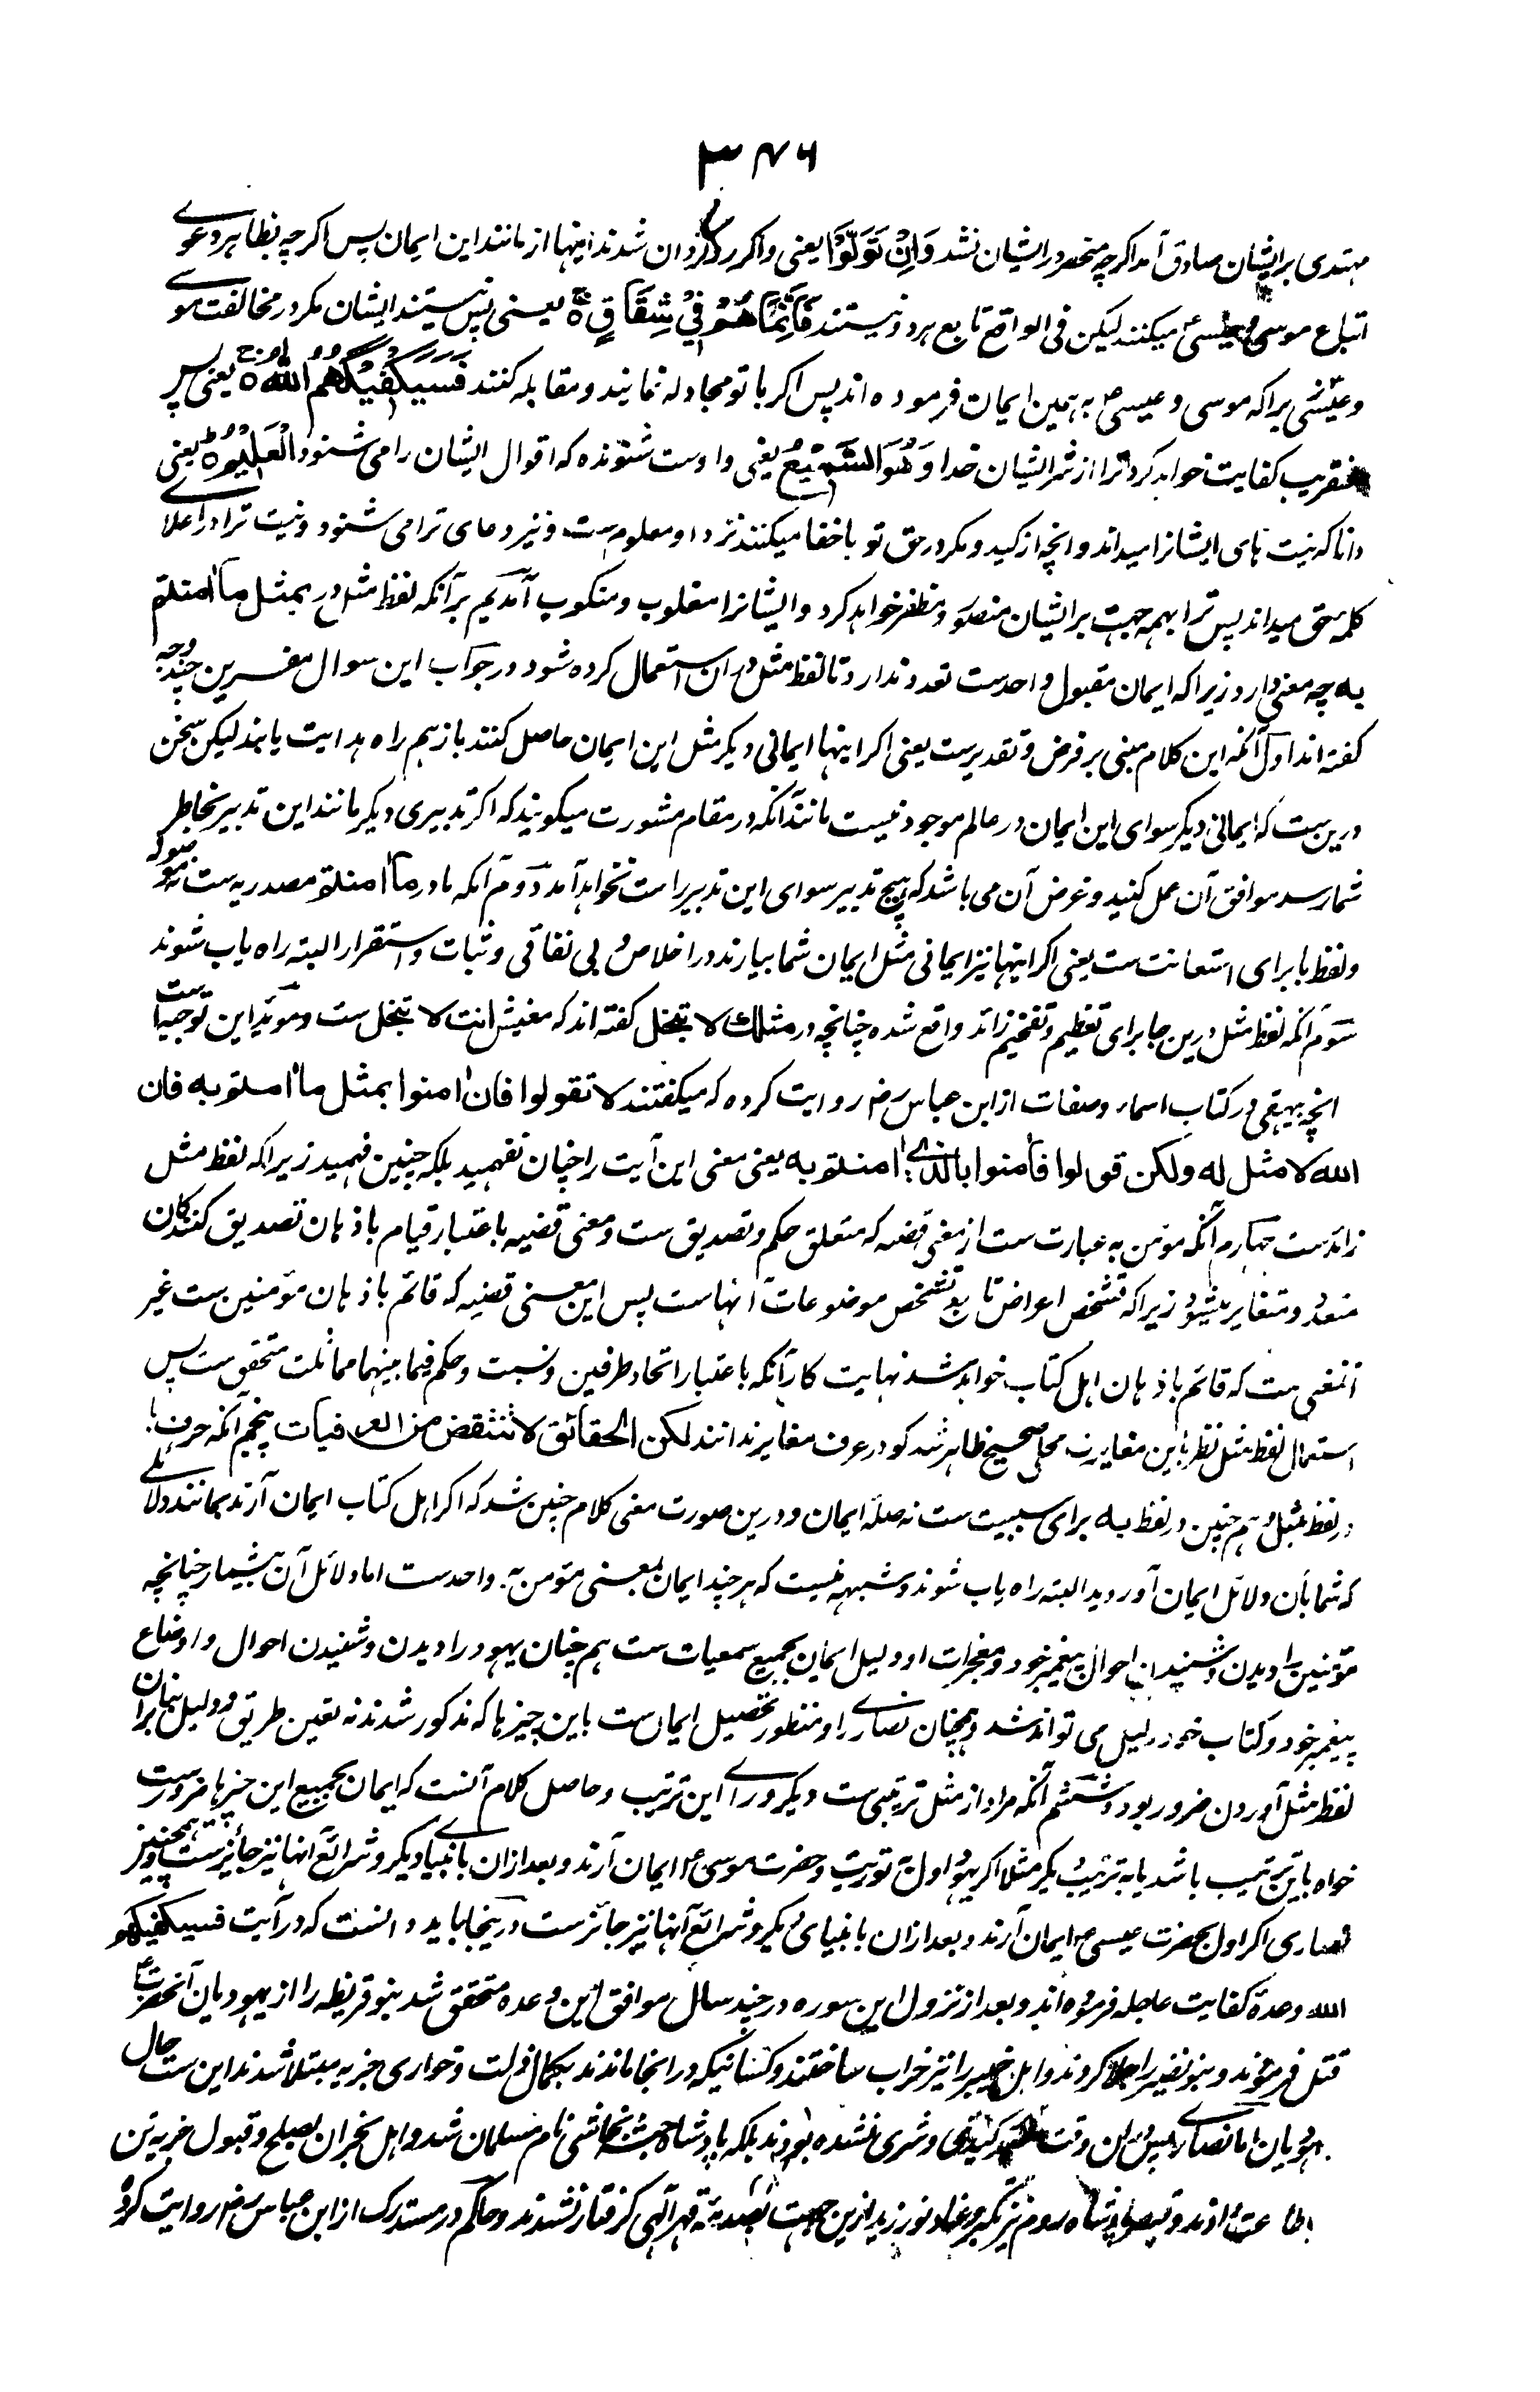 ۳۴۶
مهتدی بر ایشان صادق آمد اگرچه منحصر در ایشان نشد وَاِنْ تَوَلَّوْا یعنی و اگر روگردان شدند اینها از مانند این ایمان پس اگرچه بظاهر دعوے
اتباع موسی و عیسیٰ میکنند لیکن فی الواقع تابع هر دو نیستند فَاِنَّمَا هُمْ فِیْ شِقَاقٍ یعنی پس نیستند ایشان مگر در مخالفت موسے
و عیسٰی زیراکه موسی و عیسی به همین ایمان فرموده اند پس اگر با تو مجادله نمایند و مقابله کنند فَسَیَكْفِیْكَهُمُ اللّٰهُ یعنی پس
عنقریب کفایت خواهد کرد ترا از شر ایشان خدا وَهُوَ السَّمِیْعُ یعنی و اوست شنونده که اقوال ایشان را می شنود الْعَلِیْمُ یعنی
دانا که نیت های ایشانرا میداند و انچه از کید و مکر در حق تو باخفا میکنند نزد او معلوم ست و نیز دعای ترا می شنود و نیت ترا در اعلائے
کلمه حق میداند پس ترا بهمه جهت بر ایشان منصور و مظفر خواهد کرد و ایشانرا مغلوب و منکوب آمدیم بر آنکه لفظ مثل در بمثل ما اٰمنتم
به چه معنی دارد زیراکه ایمان مقبول واحدست تعدد ندارد تا لفظ مثل دران استعمال کرده شود در جواب این سوال مفسرین چند وجه
گفته اند اول آنکه این کلام مبنی بر فرض و تقدیرست یعنی اگر اینها ایمانی دیگر مثل این ایمان حاصل کنند بازهم راه هدایت یابند لیکن سخن
درین ست که ایمانی دیگر سوای این ایمان در عالم موجود نیست مانند آنکه در مقام مشورت میگویند که اگر تدبیری دیگر مانند این تدبیر بخاطر
شما رسد موافق آن عمل کنید و غرض آن می باشد که هیچ تدبیر سوای این تدبیر راست نخواهد آمد دوم آنکه ما در ما اٰمنتم مصدریه ست نه موصوله
و لفظ با برای استعانت ست یعنی اگر اینها نیز ایمانی مثل ایمان شما بیارند در اخلاص و بی نفاقی و ثبات و استقرار البته راه یاب شوند
سوم آنکه لفظ مثل درین جا برای تعظیم و تفخیم زائد واقع شده چنانچه در مثلك لا تبخل گفته اند که معنیش انت لا تبخل ست و موید این توجیه است
انچه بیهقی در کتاب اسماء و صفات از ابن عباس رض روایت کرده که میگفتند لا تقولوا فان اٰمنوا بمثل ما اٰمنتم به فان
الله لا مثل له ولكن قولوا فاٰمنوا بالذی اٰمنتم به یعنی معنی این آیت را چنان نفهمید بلکه چنین فهمید زیراکه لفظ مثل
زائدست چهارم آنکه مومن به عبارت ست از معنی قضیه که متعلق حکم و تصدیق ست و معنی قضیه باعتبار قیام باذهان تصدیق کنندگان
متعدد و متغایر میشود زیراکه تشخص اعراض تابع تشخص موضوعات آنهاست پس این معنی قضیه که قائم باذهان مؤمنین ست غیر
آنمعنی ست که قائم باذهان اهل کتاب خواهد شد نهایت کار آنکه باعتبار اتحاد طرفین و نسبت و حکم فیما بینهما مماثلت متحقق ست پس
استعمال لفظ مثل نظر باین مغایرت محلی صحیح ظاهر شد گو در عرف مغایر ندانند لكن الحقائق لا تنتقض من العرفیات پنجم آنکه حرف با
در لفظ بمثل و هم چنین در لفظ به برای سببیت ست نه صلهٔ ایمان و درین صورت معنی کلام چنین شد که اگر اهل کتاب ایمان آرند بمانند دلائلے
که شما بآن دلائل ایمان آوردید البته راه یاب شوند و شبهه نیست که هر چند ایمان بمعنی مؤمن به واحدست اما دلائل آن بیشمار چنانچه
مؤمنین را دیدن و شنیدن احوال پیغمبر خود و معجزات او دلیل ایمان بجمیع سمعیات ست هم چنان یهود را دیدن و شنیدن احوال و اوضاع
پیغمبر خود و کتاب خود دلیل می تواند شد و همچنان نصارے را و منظور تحصیل ایمان ست باین چیزها که مذکور شدند نه تعین طریق و دلیل بنابران
لفظ مثل آوردن ضرور بود و ششم آنکه مراد از مثل ترتیبی ست دیگر وراے این ترتیب و حاصل کلام آنست که ایمان بجمیع این چیزها ضرورست
خواه باین ترتیب باشد یا به ترتیب دیگر مثلا اگر یهود اول به توریت و حضرت موسیٰ ایمان آرند و بعد ازان بانبیاے دیگر و شرائع آنها نیز جائزست و همچنین
نصاری اگر اول بحضرت عیسی ایمان آرند و بعد ازان بانبیای دیگر و شرائع آنها نیز جائزست درینجا باید دانست که در آیت فسیكفیكهم
الله وعدهٔ کفایت عاجله فرموده اند و بعد از نزول این سوره در چند سال موافق این وعده متحقق شد بنو قریظه را از یهودیان آنحضرت
قتل فرمودند و بنو نضیر را جلا کردند و اهل خیبر را نیز خراب ساختند و کسانیکه در انجا ماندند بکمال ذلت و خواری جزیه مبتلا شدند این ست حال
یهودیان اما نصارے پس دران وقت کیدی و شری نشده بودند بلکه پادشاه حبشه نجاشی نام مسلمان شد و اهل نجران بصلح و قبول جزیه تن
اطاعت دادند و قیصر پادشاه روم نیز تکبر و عناد نورزید ازین جهت بصدمهٔ قهر آلهی گرفتار نشدند و حاکم در مستدرک از ابن عباس رض روایت کرده